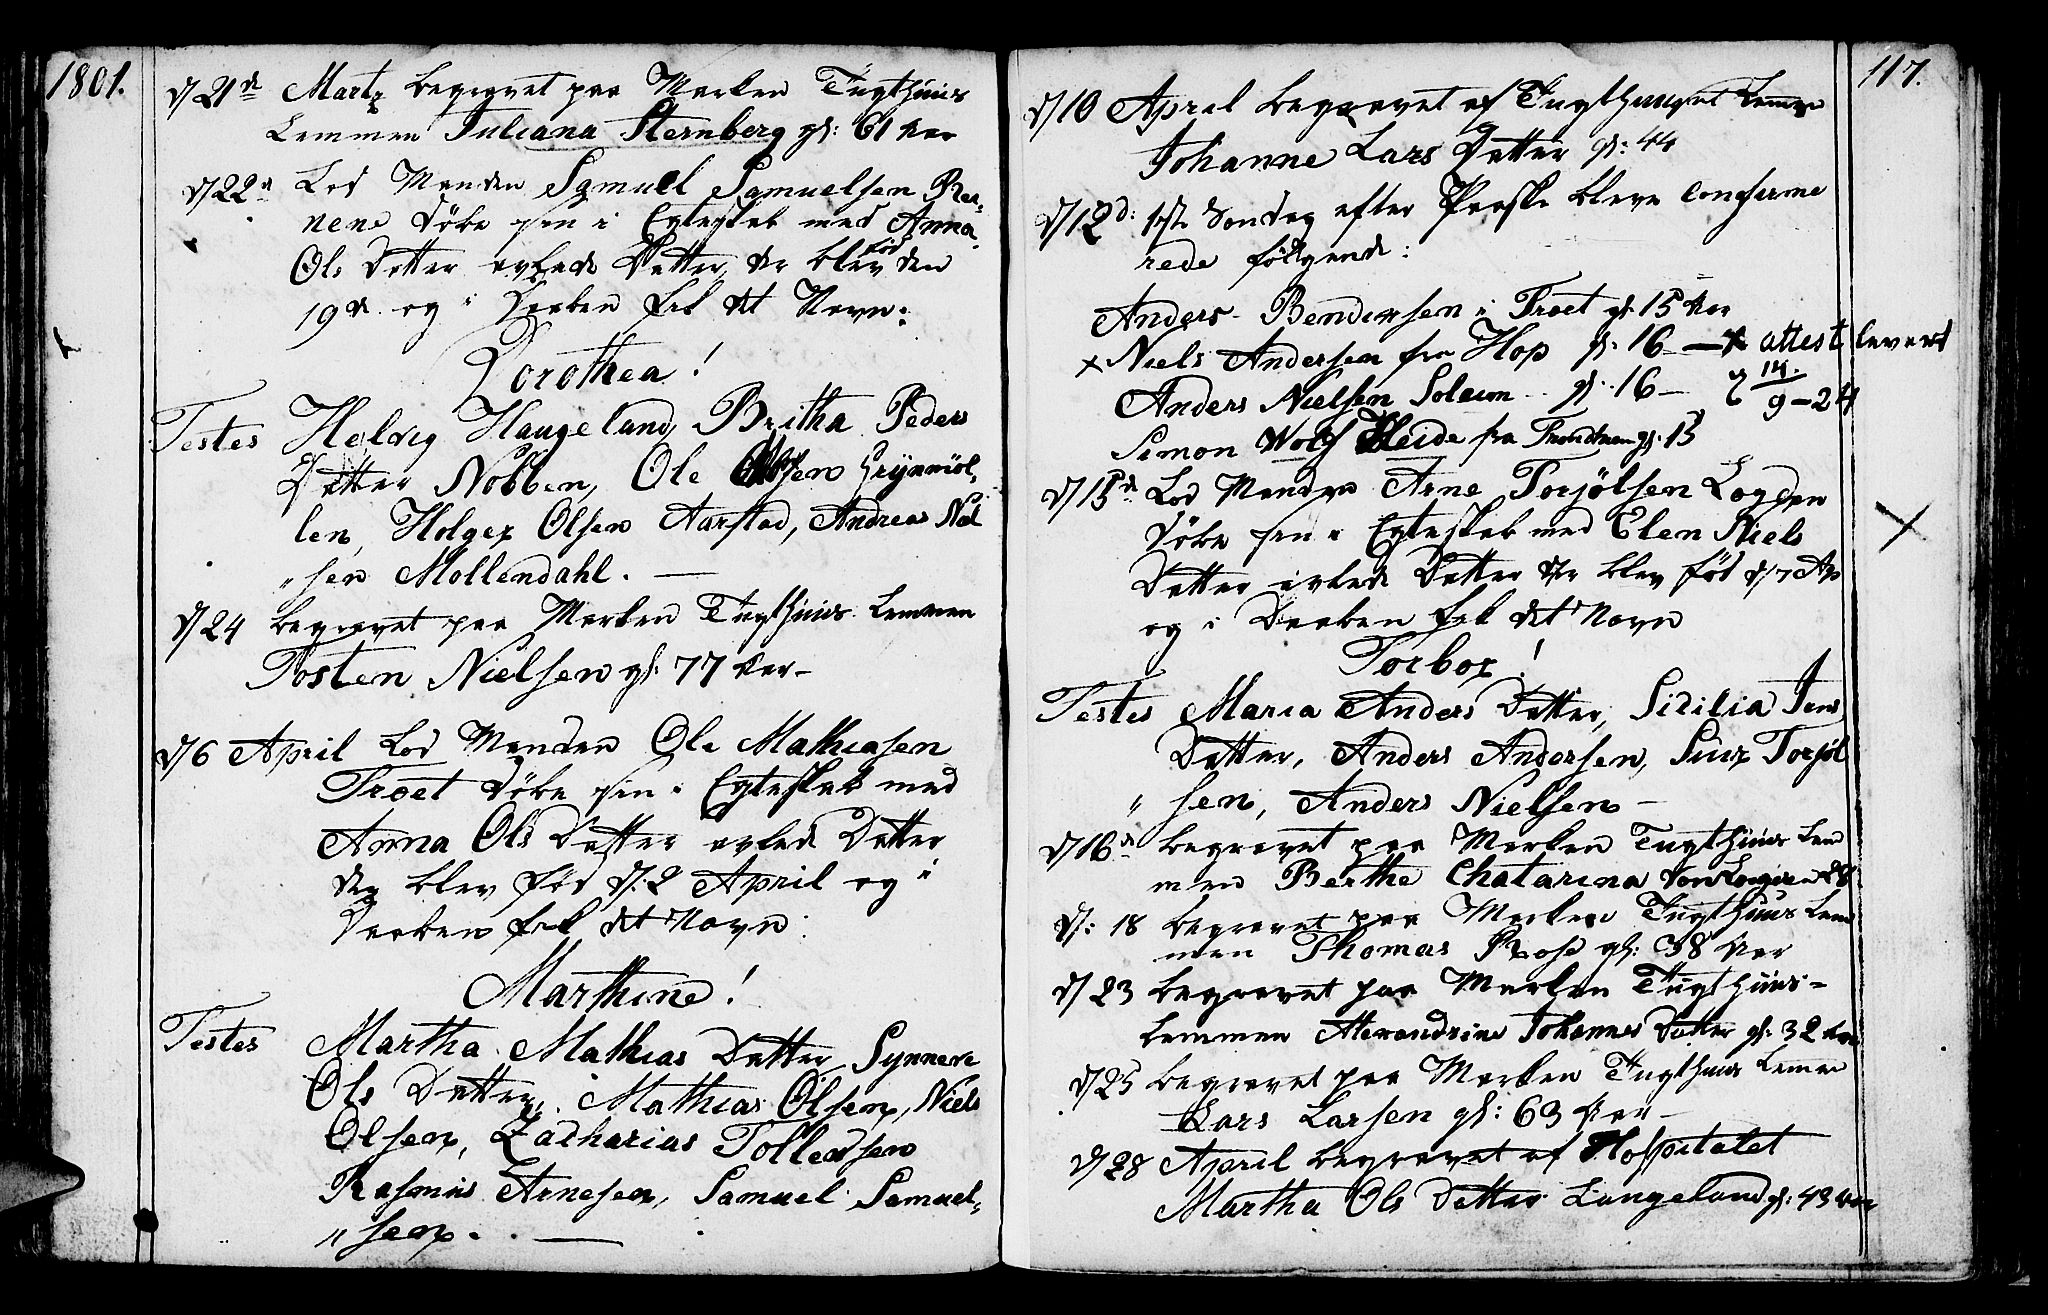 1801.
d/ 21de Martz begravet paa Marken Tugthuus
Lemmen Juliana Sternberg gl: 61 Aar
d/ 22d Lod Manden Samuel Samuelsen
døbe sin i Egteskab med Anna
Ols Datter avlede Datter, der blev fød den
19de og i Daaben fik det Navn:
Dorothea!
Testes Helvig Haugeland, Britha Peders
Datter Nobben, Ole Olsen Grÿnmöl-
len, Holger Olsen Aarstad, Andreas Niel
"sen Mollendahl. —
d/ 24 begravet paa Marken Tugthuus Lemmen
Tosten Nielsen gl: 77 Aar –
d/ 6 April Lod Manden Ole Mathiasen
Troet døbe sin i Egteskab med
Anna Ols Datter avlede Datter
der blev fød d: 2 April og i
Daaben fik det Navn:
Marthine!
Testes Martha Mathias Datter, Synneve
Ols Datter, Mathias Olsen, Niels
Olsen, Zacharias Tollevsen
Rasmus Arnesen, Samuel Samuel-
"sen. . —
117.
d/ 10 April begravet af Tugthuuset Lemmen
Johanne Lars Datter gl: 44
d/ 12d: 1ste Søndag efter Paaske bleve confirme
rede følgende:
Anders Bendixsen i Troet gl. 15 Aar
x Niels Andersen fra Hop gl: 16 — x attest levert
Anders Nielsen Soleim gl. 16 – 14/9 – 24
Simon Wolf Heide fra Trondhiem gl. 15
d/ 15d Lod Manden Arne Torjølsen Lægden
døbe sin i Egteskab med Elen Niels
Datter avlede Datter der blev fød d/ 7 Ap
og i Daaben fik det Navn
Torbor!
Testes Maria Anders Datter, Sicilia Jens
Datter, Anders Andersen, Siur Torjøl
"sen, Anders Nielsen –
d/ 16d begravet paa Marken Tugthuus Lem
men Berthe Chatarina
d: 18 begravet paa Marken Tugthuus Lem
men Thomas Rosp gl: 38 Aar
d/ 23 begravet paa Marken Tugthuus-
Lemmen Alexandrine Johannes Datter gl: 32 Aar
d/ 25 begravet paa Marken Tugthuus Lemmen
Lars Larsen gl: 63 Aar –
d/ 28 April begravet af Hospitalet
Martha Ols Datter Langeland gl: 43 Aar